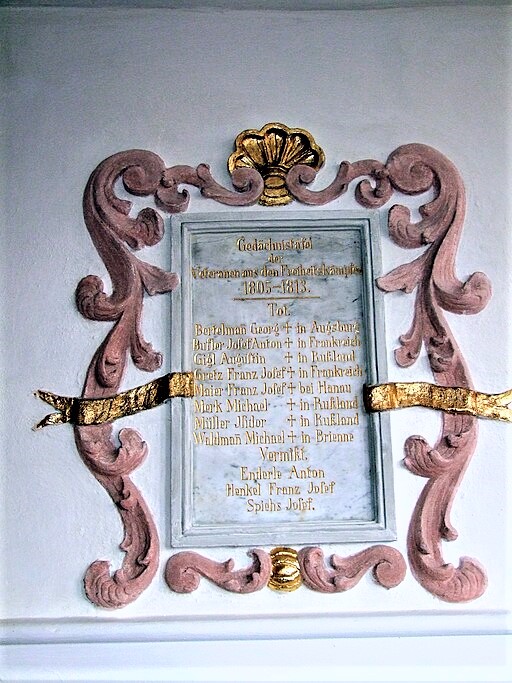 Gedächnistafel
der
Veteranen aus den Freiheitskämpfe
1805-1813.
Tot.
Bertelman Georg † in Augsburg
Josef Anton † in Frankreich
Gigl Augustin † in Rußland
Goetz Franz Josef † in Frankreich
Maier Franz Josef † bei Hanau
Merk Michael † in Rußland
Müller Isidor † in Rußland
Waldman Michael † in Brienne
Vermißt.
Enderle Anton
Henkel Franz Josef
Spiehs Josef.